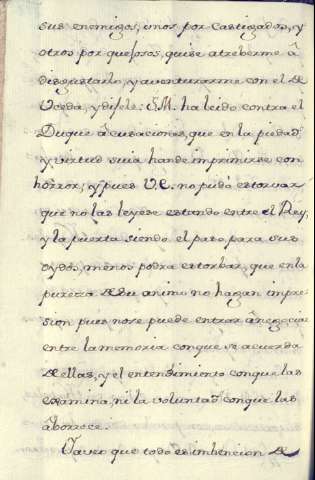 sus enemigos, unos por castigados, y
otros por quejosos, quise atreberme â
disgustarlo, y aventurarme con el de
Uceda, y dijele: S.M. ha leido contra el
Duque acusaciones, que en la piedad,
y virtud suia han de imprimirse con
horror; y pues V.E. no pudo estorvar
que no las leyese estando entre el Rey,
y la puerta siendo el paso para sus
oydos, menos podra estorbar, que en la
pureza de su animo no hagan impre
sion pues no se puede entrar à negociar
entre la memoria con que se acuerda
de ellas, y el entendimiento con que las
examina, ni la voluntad con que las
aborrece.
Va ver que todo es imbencion de